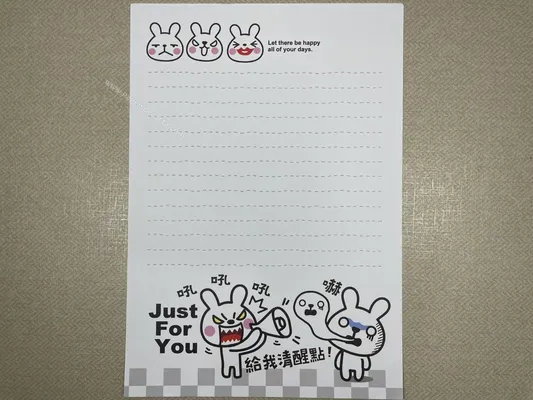 Let there be happy
all of your days.
吼 吼 吼
嚇
Just
For
You
給我清醒點!